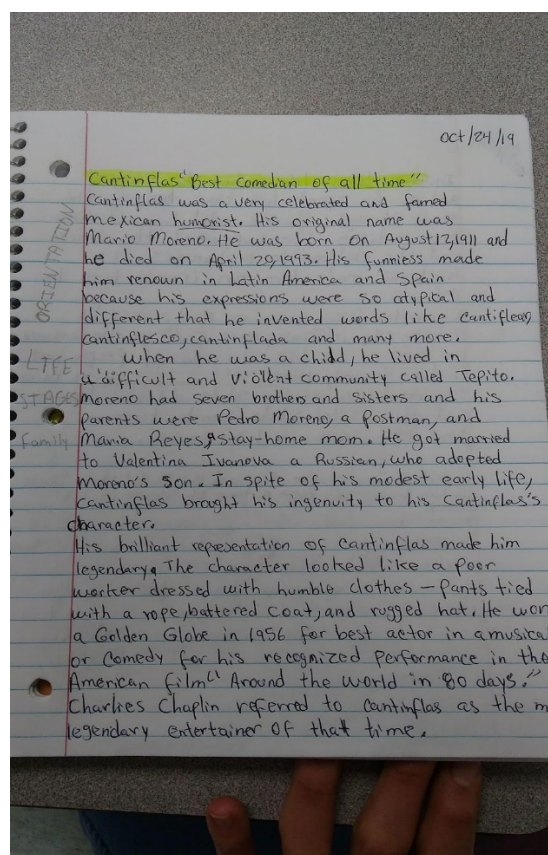 oct/24/19
Cantinflas "Best comedian of all time"
Cantinflas was a very celebrated and famed
mexican humorist. His original name was
Mario Moreno. He was born on August 12, 1911 and
he died on April 20, 1993. His funniess made
him renown in Latin America and Spain
because his expressions were so atypical and
different that he invented words like cantiflear,
cantinflesco, cantinflada and many more.
when he was a child, he lived in
a difficult and violent community called Tepito.
Moreno had seven brothers and sisters and his
parents were Pedro Moreno, a postman, and
Maria Reyes, stay-home mom. He got married
to Valentina Ivanova a Russian, who adopted
Moreno's son. In spite of his modest early life,
Cantinflas brought his ingenuity to his Cantinflas's
character.
His brilliant representation of Cantinflas made him
legendary. The character looked like a poor
worker dressed with humble clothes - pants tied
with a rope, battered coat, and rugged hat. He wor
a Golden Globe in 1956 for best actor in a musica
or Comedy for his recognized performance in the
American film "Around the world in 80 days."
Charlies Chaplin referred to Cantinflas as the m
legendary entertainer of that time.
ORIENTATION
LIFE
STAGES
Family